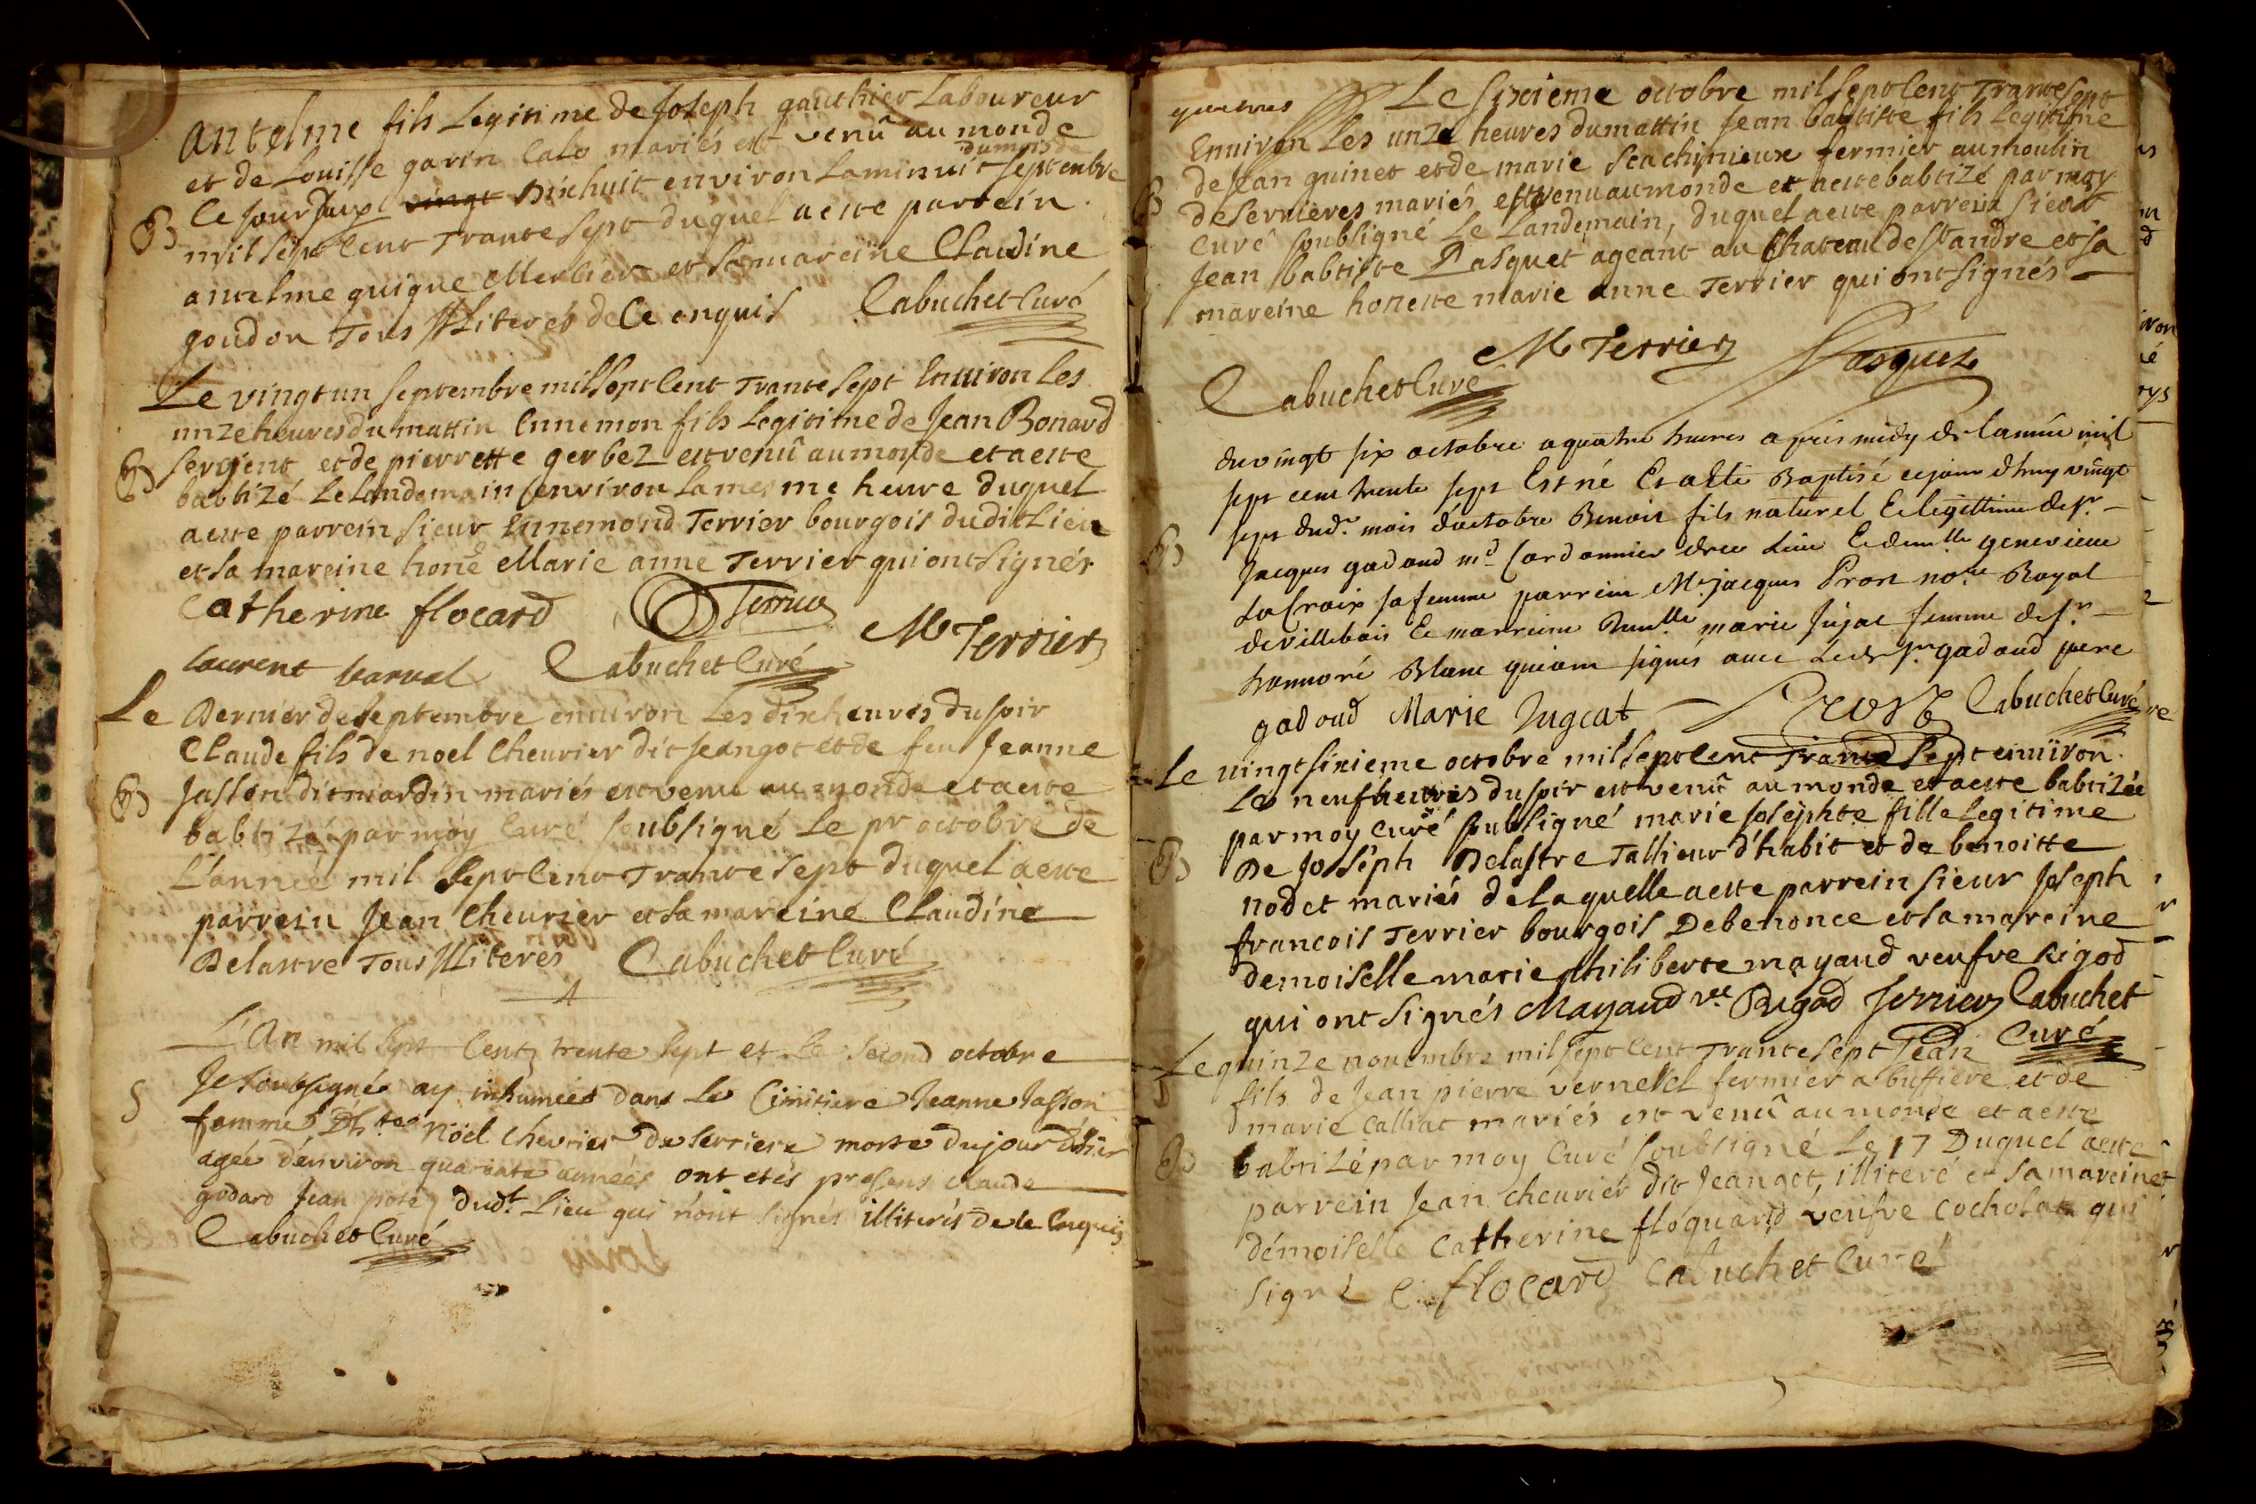 antelme fils Legitime de Joseph gauthier Laboureur
et de Louisse garin Calo mariés est venû au monde
du mois de
Ce jourdhuy vingt Dixhuit environ La minuit septembre
B
mil sept Cent Trante sept duquel a este parrein
antelme guigue Merlier et sa mareine Claudine
goudon Tous Illiterés de Ce enquis Cabuchet Curé
Le vingt un septembre mil Sept Cent Trante Sept Environ Les
unze heures du mattin Ennemon fils Legitime de Jean Bonard
serojent et de pierrette gerbez est venû au monde et a este
B
babtizé Le Landemain environ La mesme heure duquel
a este parrein sieur Ennemond Terrier bourgois dudit Lieu
et sa mareine hone Marie anne Terrier qui ont signés
Catherine flocard Terrier
M Terrier
Laurent Cabuchet Curé
Le Dernier de septembre environ Les dix heures du soir
Claude fils de noel Cheurier dit Jeangot et de feu Jeanne
B
Jasson dit mardin mariés est venu au monde et a este
babtizé par moy Curé soubsigné Le pr octobre de
L'année mil Sept Cent Trante sept duquel a este
parrein Jean Cheurier et sa mareine Claudine
Delastre Tous Illiteres Cabuchet Curé
L'An mil Sept Cent trente sept et Le Second octobre
S
Je soubsigné ay inhumée dans Le Cimitiere Jeanne Jasson
femme Noël Chevrier de Serriere morte du jour d'hier
agée d'environ quarante années ont etés presens Claude
godard Jean pote dudt Lieu qui n'ont signés illiterés de Ce Enquis
Cabuchet Curé
Le sixieme octobre mil sept Cent Trante sept
Environ Les unze heures du mattin Jean babtiste fils Legitime
de Jean guinet et de marie scachinieux fermier au moulin
B
de Serrieres mariés est venu au monde et a este babtizé par moy
Curé soubsigné Le Landemain, duquel a este parrein sieur
Jean babtiste Pasquet ageant au Chateau de St andre et sa
mareine honette marie anne Terrier qui ont signés
M Terrier Pasquet
Cabuchet Curé
du vingt six octobre a quatre heures apres midy de lannée mil
sept cent trente sept Est né Et a Eté Baptisé ce jour dhuy vingt
sept dudt mois doctobre Benoit fils naturel & legittime de sr
B
Jacques gadoud md Cordonnier de ce Lieu & de delle genevieve
La Croix sa femme parrein Me jacques Prost nore Royal
de villebois & marreine delle marie Jujat femme de sr
honnoré Blanc qui ont signés avec Ledt sr gadoud pere
gadoud Marie Jugeat Prost Cabuchet Curé
Le vingt sixieme octobre mil sept Cent Trante sept environ
Les neuf heures du soir est venû au monde et a este babtizée
par moy Curé soubsigné marie josephte fille Legitime
B
De Josseph Delastre Tallieur d'habit et de benoitte
nodet mariés de Laquelle a este parrein sieur Joseph
francois Terrier bourgois De benonce et sa mareine
demoiselle marie philiberte mayaud veufve Rigod
qui ont signés Mayaud ve Rigod Terrier Cabuchet
Curé
Le quinze novembre mil sept Cent Trante sept Jean
fils de Jean pierre vernerel fermier a buffiere et de
marie Calliat mariés est venû au monde et a este
B
babtizé par moy Curé soubsigné Le 17 Duquel a este
parrein Jean Cheurier dit Jeangot, illiteré et sa mareine
démoiselle Catherine floquard veufve Cocholat qui
signé C flocard Cabuchet Curé